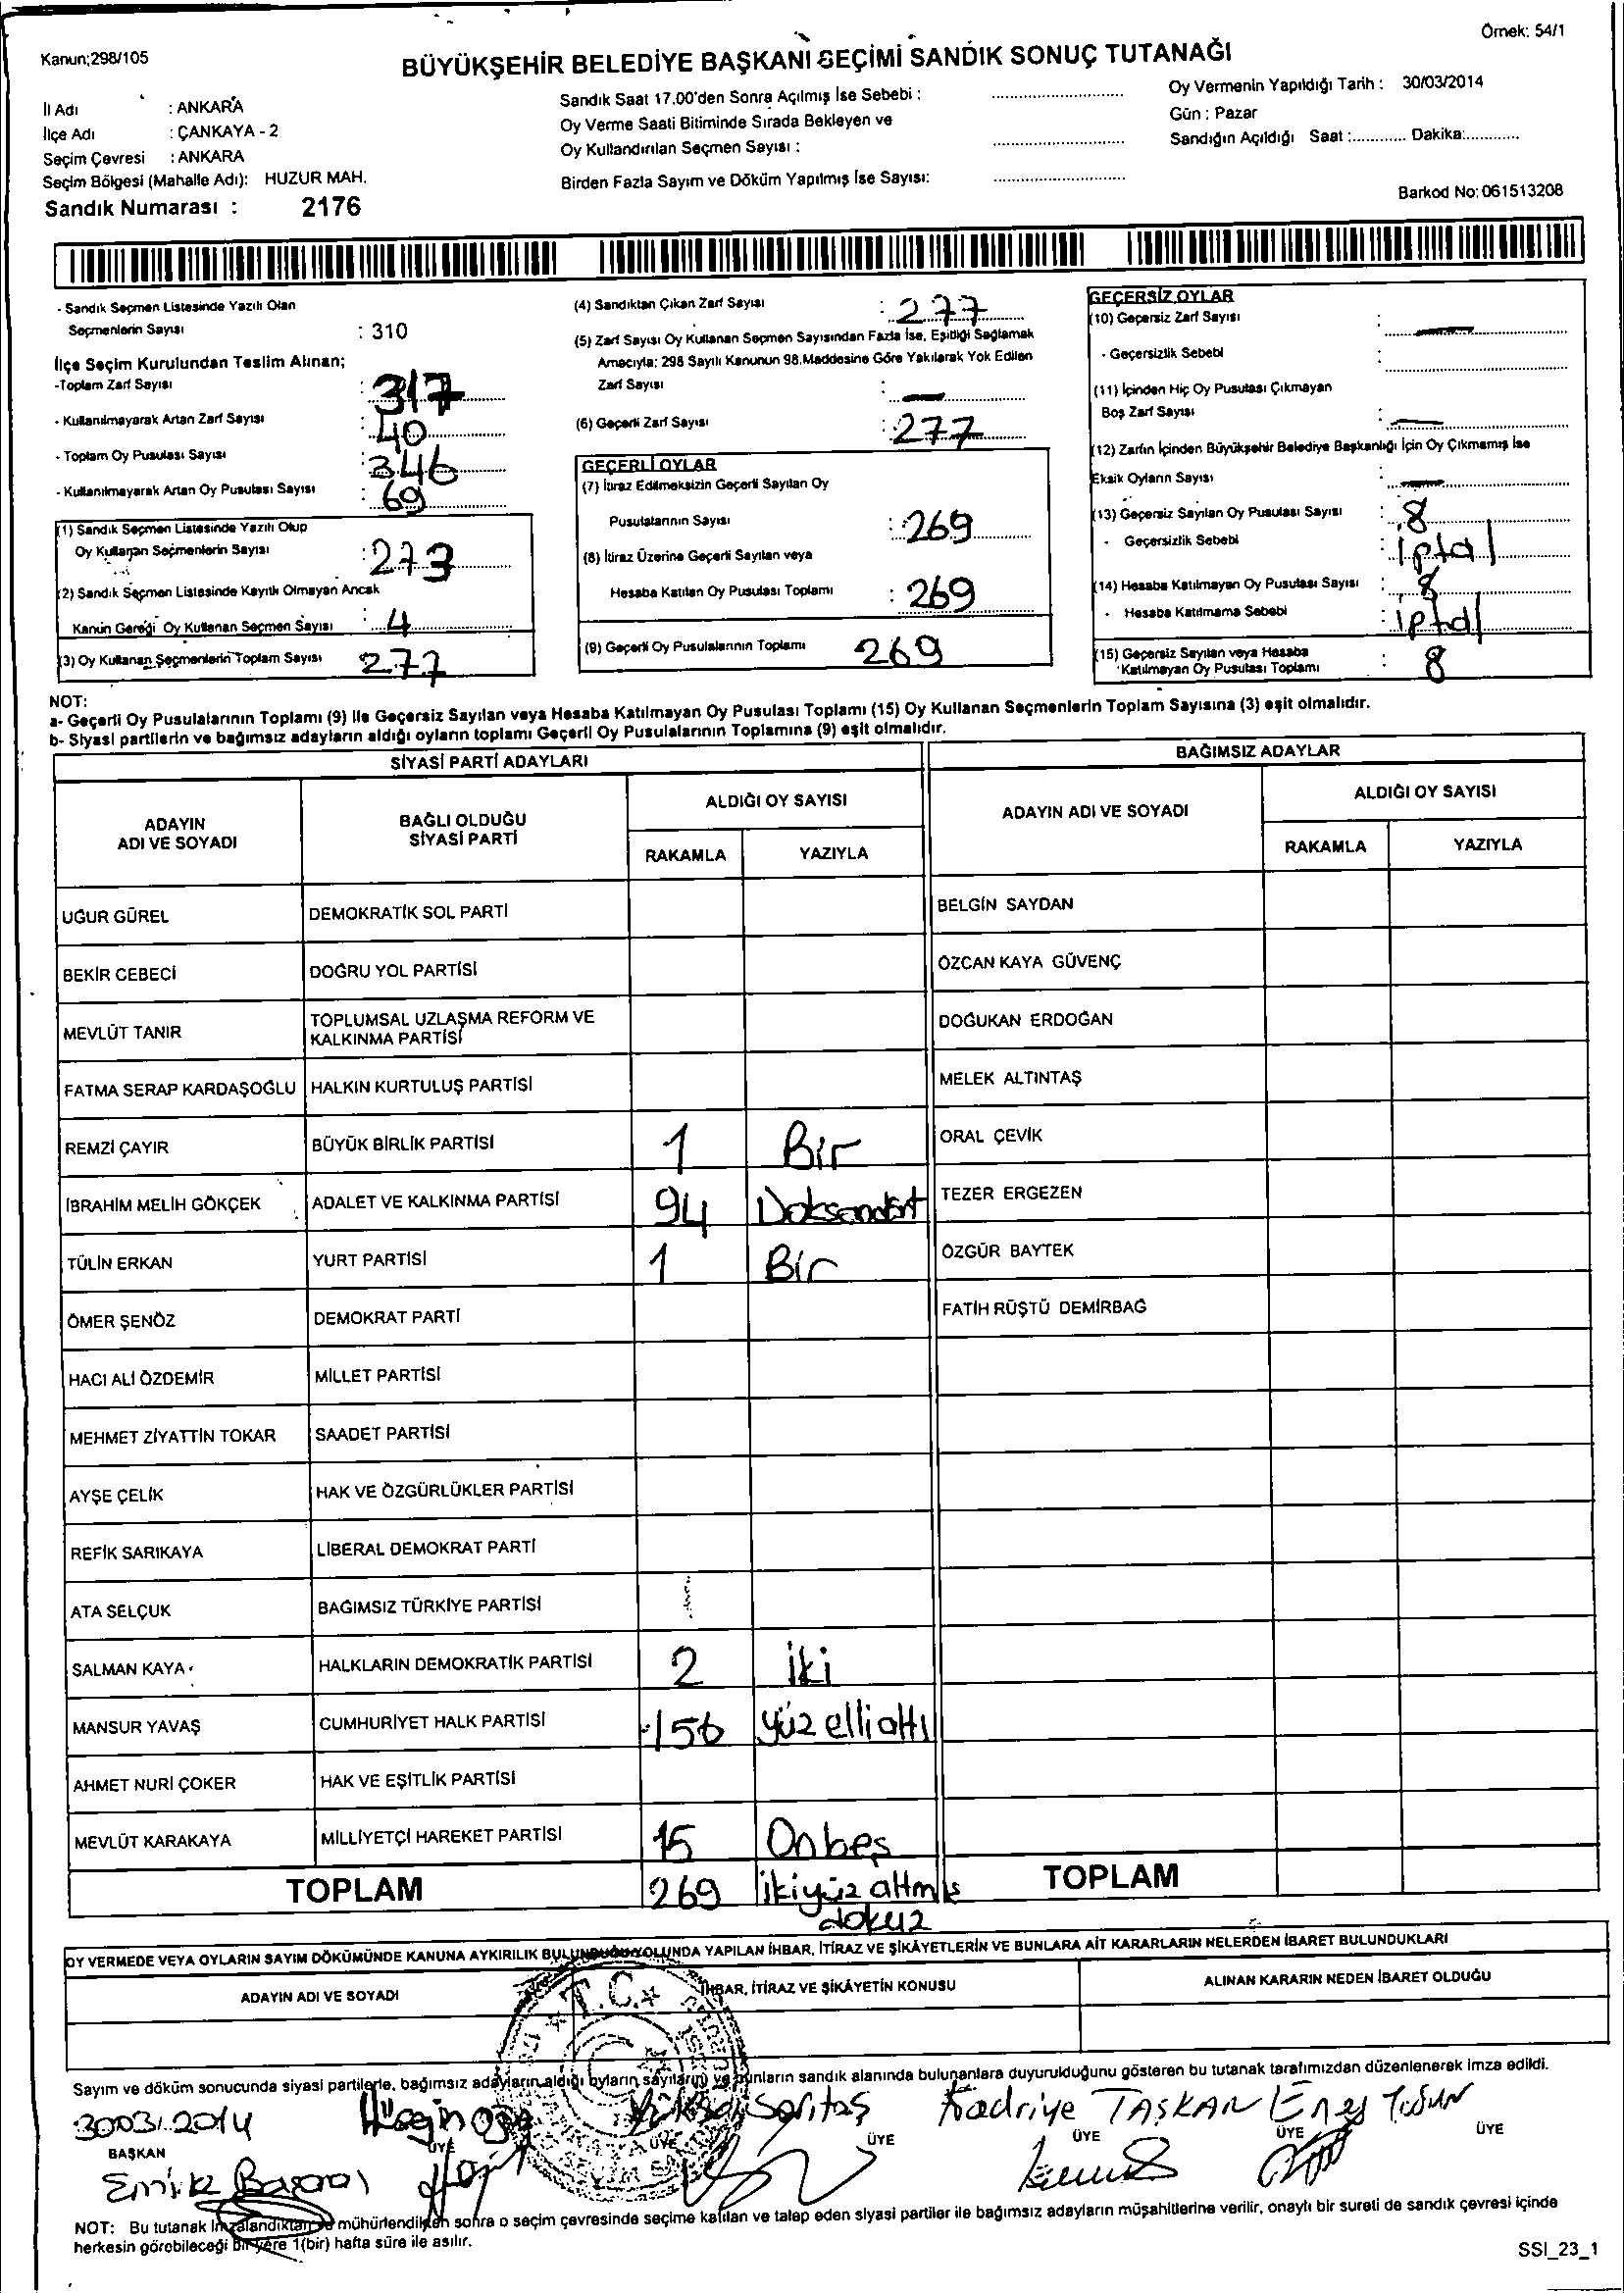 Örnek: 54/1
Kanun;298/105
BÜYÜKŞEHİR BELEDİYE BAŞKANI SEÇİMİ SANDIK SONUÇ TUTANAĞI
İl Adı : ANKARA
İlçe Adı : ÇANKAYA - 2
Seçim Çevresi : ANKARA
Seçim Bölgesi (Mahalle Adı): HUZUR MAH.
Sandık Numarası : 2176
Sandık Saat 17.00'den Sonra Açılmış İse Sebebi : ..........................
Oy Verme Saati Bitiminde Sırada Bekleyen ve
Oy Kullandırılan Seçmen Sayısı : ..........................
Birden Fazla Sayım ve Döküm Yapılmış İse Sayısı: ..........................
Oy Vermenin Yapıldığı Tarih : 30/03/2014
Gün : Pazar
Sandığın Açıldığı Saat :............ Dakika:............
Barkod No: 061513208
- Sandık Seçmen Listesinde Yazılı Olan
Seçmenlerin Sayısı : 310
İlçe Seçim Kurulundan Teslim Alınan;
-Toplam Zarf Sayısı : 317
- Kullanılmayarak Artan Zarf Sayısı : 40
- Toplam Oy Pusulası Sayısı : 346
- Kullanılmayarak Artan Oy Pusulası Sayısı : 69
(1) Sandık Seçmen Listesinde Yazılı Olup
Oy Kullanan Seçmenlerin Sayısı : 273
(2) Sandık Seçmen Listesinde Kayıtlı Olmayan Ancak
Kanun Gereği Oy Kullanan Seçmen Sayısı : 4
(3) Oy Kullanan Seçmenlerin Toplam Sayısı 277
(4) Sandıktan Çıkan Zarf Sayısı : 277
(5) Zarf Sayısı Oy Kullanan Seçmen Sayısından Fazla İse, Eşitliği Sağlamak
Amacıyla; 298 Sayılı Kanunun 98.Maddesine Göre Yakılarak Yok Edilen
Zarf Sayısı : —
(6) Geçerli Zarf Sayısı : 277
GEÇERLİ OYLAR
(7) İtiraz Edilmeksizin Geçerli Sayılan Oy
Pusulalarının Sayısı : 269
(8) İtiraz Üzerine Geçerli Sayılan veya
Hesaba Katılan Oy Pusulası Toplamı : 269
(9) Geçerli Oy Pusulalarının Toplamı 269
GEÇERSİZ OYLAR
(10) Geçersiz Zarf Sayısı : —
- Geçersizlik Sebebi :
(11) İçinden Hiç Oy Pusulası Çıkmayan
Boş Zarf Sayısı : —
(12) Zarfın İçinden Büyükşehir Belediye Başkanlığı İçin Oy Çıkmamış İse
Eksik Oyların Sayısı : —
(13) Geçersiz Sayılan Oy Pusulası Sayısı : 8
- Geçersizlik Sebebi : iptal
(14) Hesaba Katılmayan Oy Pusulası Sayısı : 8
- Hesaba Katılmama Sebebi : iptal
(15) Geçersiz Sayılan veya Hesaba
Katılmayan Oy Pusulası Toplamı : 8
NOT:
a- Geçerli Oy Pusulalarının Toplamı (9) ile Geçersiz Sayılan veya Hesaba Katılmayan Oy Pusulası Toplamı (15) Oy Kullanan Seçmenlerin Toplam Sayısına (3) eşit olmalıdır.
b- Siyasi partilerin ve bağımsız adayların aldığı oyların toplamı Geçerli Oy Pusulalarının Toplamına (9) eşit olmalıdır.
SİYASİ PARTİ ADAYLARI
BAĞIMSIZ ADAYLAR
ADAYIN ADI VE SOYADI
BAĞLI OLDUĞU SİYASİ PARTİ
ALDIĞI OY SAYISI
RAKAMLA YAZIYLA
ADAYIN ADI VE SOYADI
ALDIĞI OY SAYISI
RAKAMLA YAZIYLA
UĞUR GÜREL DEMOKRATİK SOL PARTİ BELGİN SAYDAN
BEKİR CEBECİ DOĞRU YOL PARTİSİ ÖZCAN KAYA GÜVENÇ
MEVLÜT TANIR TOPLUMSAL UZLAŞMA REFORM VE KALKINMA PARTİSİ DOĞUKAN ERDOĞAN
FATMA SERAP KARDAŞOĞLU HALKIN KURTULUŞ PARTİSİ MELEK ALTINTAŞ
REMZİ ÇAYIR BÜYÜK BİRLİK PARTİSİ 1 Bir ORAL ÇEVİK
İBRAHİM MELİH GÖKÇEK ADALET VE KALKINMA PARTİSİ 94 Doksandört TEZER ERGEZEN
TÜLİN ERKAN YURT PARTİSİ 1 Bir ÖZGÜR BAYTEK
ÖMER ŞENÖZ DEMOKRAT PARTİ FATİH RÜŞTÜ DEMİRBAĞ
HACI ALİ ÖZDEMİR MİLLET PARTİSİ
MEHMET ZİYATTİN TOKAR SAADET PARTİSİ
AYŞE ÇELİK HAK VE ÖZGÜRLÜKLER PARTİSİ
REFİK SARIKAYA LİBERAL DEMOKRAT PARTİ
ATA SELÇUK BAĞIMSIZ TÜRKİYE PARTİSİ
SALMAN KAYA HALKLARIN DEMOKRATİK PARTİSİ 2 iki
MANSUR YAVAŞ CUMHURİYET HALK PARTİSİ 156 Yüz elli altı
AHMET NURİ ÇOKER HAK VE EŞİTLİK PARTİSİ
MEVLÜT KARAKAYA MİLLİYETÇİ HAREKET PARTİSİ 15 Onbeş
TOPLAM 269 ikiyüz altmış dokuz TOPLAM
OY VERMEDE VEYA OYLARIN SAYIM DÖKÜMÜNDE KANUNA AYKIRILIK BULUNDUĞU YOLUNDA YAPILAN İHBAR, İTİRAZ VE ŞİKÂYETLERİN VE BUNLARA AİT KARARLARIN NELERDEN İBARET BULUNDUKLARI
ADAYIN ADI VE SOYADI İHBAR, İTİRAZ VE ŞİKÂYETİN KONUSU ALINAN KARARIN NEDEN İBARET OLDUĞU
T.C.
Sayım ve döküm sonucunda siyasi partilerle, bağımsız adayların aldığı oyların sayılarını ve bunların sandık alanında bulunanlara duyurulduğunu gösteren bu tutanak tarafımızdan düzenlenerek imza edildi.
30.03.2014 Hüseyin Yüksel Sarıtaş Kadriye TAŞKAN Enes
BAŞKAN ÜYE ÜYE ÜYE ÜYE ÜYE ÜYE
NOT: Bu tutanak imzalandıktan ve mühürlendikten sonra o seçim çevresinde seçime katılan ve talep eden siyasi partiler ile bağımsız adayların müşahitlerine verilir, onaylı bir sureti de sandık çevresi içinde
herkesin görebileceği bir yere 1(bir) hafta süre ile asılır.
SSI_23_1